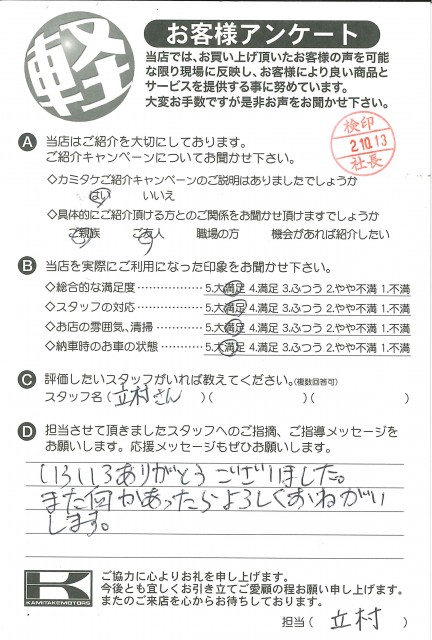 軽
お客様アンケート
当店では、お買い上げ頂いたお客様の声を可能
な限り現場に反映し、お客様により良い商品と
サービスを提供する事に努めています。
大変お手数ですが是非お声をお聞かせ下さい。
検印
2.10.13
社長
A 当店はご紹介を大切にしております。
ご紹介キャンペーンについてお聞かせ下さい。
◇カミタケご紹介キャンペーンのご説明はありましたでしょうか
はい いいえ
◇具体的にご紹介頂ける方とのご関係をお聞かせ頂けますでしょうか
ご親族 ご友人 職場の方 機会があれば紹介したい
B 当店を実際にご利用になった印象をお聞かせ下さい。
◇総合的な満足度‥‥‥‥‥‥ 5.大満足 4.満足 3.ふつう 2.やや不満 1.不満
◇スタッフの対応‥‥‥‥‥‥ 5.大満足 4.満足 3.ふつう 2.やや不満 1.不満
◇お店の雰囲気、清掃‥‥‥‥ 5.大満足 4.満足 3.ふつう 2.やや不満 1.不満
◇納車時のお車の状態‥‥‥‥ 5.大満足 4.満足 3.ふつう 2.やや不満 1.不満
C 評価したいスタッフがいれば教えてください。(複数回答可)
スタッフ名(立村さん)( )( )
D 担当させて頂きましたスタッフへのご指摘、ご指導メッセージを
お願いします。応援メッセージもぜひお願いします。
いろいろありがとうございました。
また何かあったらよろしくおねがい
します。
K
KAMITAKE MOTORS
ご協力に心よりお礼を申し上げます。
今後とも宜しくお引き立てご愛顧の程お願い申し上げます。
またのご来店を心からお待ちしております。
担当(立村)